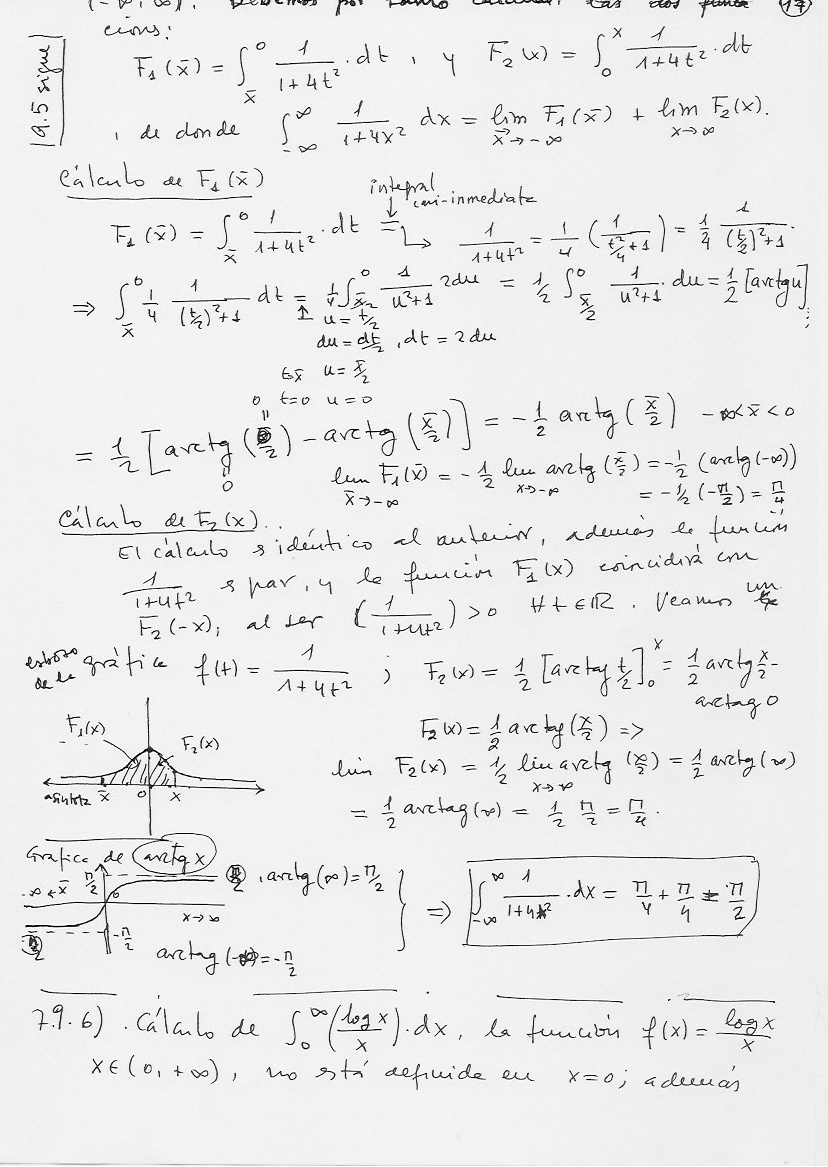 (-∞, ∞). Debemos por tanto calcular las dos fun
17
ciones:
|9.5 sigue|
F₁(x̄) = ∫_x̄^0 1/(1+4t²) · dt , y F₂(x) = ∫_0^x 1/(1+4t²) · dt
, de donde ∫_{-∞}^∞ 1/(1+4x²) dx = lim_{x̄→-∞} F₁(x̄) + lim_{x→∞} F₂(x).
Cálculo de F₁(x̄)
integral
cuasi-inmediata
F₁(x̄) = ∫_x̄^0 1/(1+4t²) · dt = ↳ 1/(1+4t²) = 1/4 (1/(t²/4+1)) = 1/4 1/((t/2)²+1).
⇒ ∫_x̄^0 1/4 1/((t/2)²+1) dt = 1/4 ∫_{x̄/2}^0 1/(u²+1) 2du = 1/2 ∫_{x̄/2}^0 1/(u²+1) · du = 1/2 [arctg u]
↑ u = t/2
du = dt/2 , dt = 2du
t=x̄ u = x̄/2
t=0 u=0
= 1/2 [arctg (0/2) - arctg (x̄/2)] = -1/2 arctg (x̄/2) -∞<x̄<0
0
lim_{x̄→-∞} F₁(x̄) = -1/2 lim_{x→-∞} arctg (x̄/2) = -1/2 (arctg(-∞))
= -1/2 (-π/2) = π/4
Cálculo de F₂(x).
El cálculo es idéntico al anterior, además la función
1/(1+4t²) es par, y la función F₁(x) coincidirá con
F₂(-x), al ser (1/(1+4t²)) >0 ∀t∈ℝ. Veamos un
esbozo de la gráfica f(t) = 1/(1+4t²) ; F₂(x) = 1/2 [arctag t/2]_0^x = 1/2 arctg x/2 -
arctag 0
F₁(x)
F₂(x)
asíntota x̄ 0 x
F₂(x) = 1/2 arctg (x/2) ⇒
lim F₂(x) = 1/2 lim_{x→∞} arctg (x/2) = 1/2 arctg (∞)
= 1/2 arctag(∞) = 1/2 π/2 = π/4.
Gráfica de arctg x
-∞ ← x̄ π/2 0 x→∞
π/2 , arctg(∞) = π/2
-π/2
arctag(-∞) = -π/2
⇒ ∫_{-∞}^∞ 1/(1+4x²) · dx = π/4 + π/4 = π/2
7.9.6). Cálculo de ∫_0^∞ (log x/x) · dx, la función f(x) = log x/x
x∈(0,+∞), no está definida en x=0; además